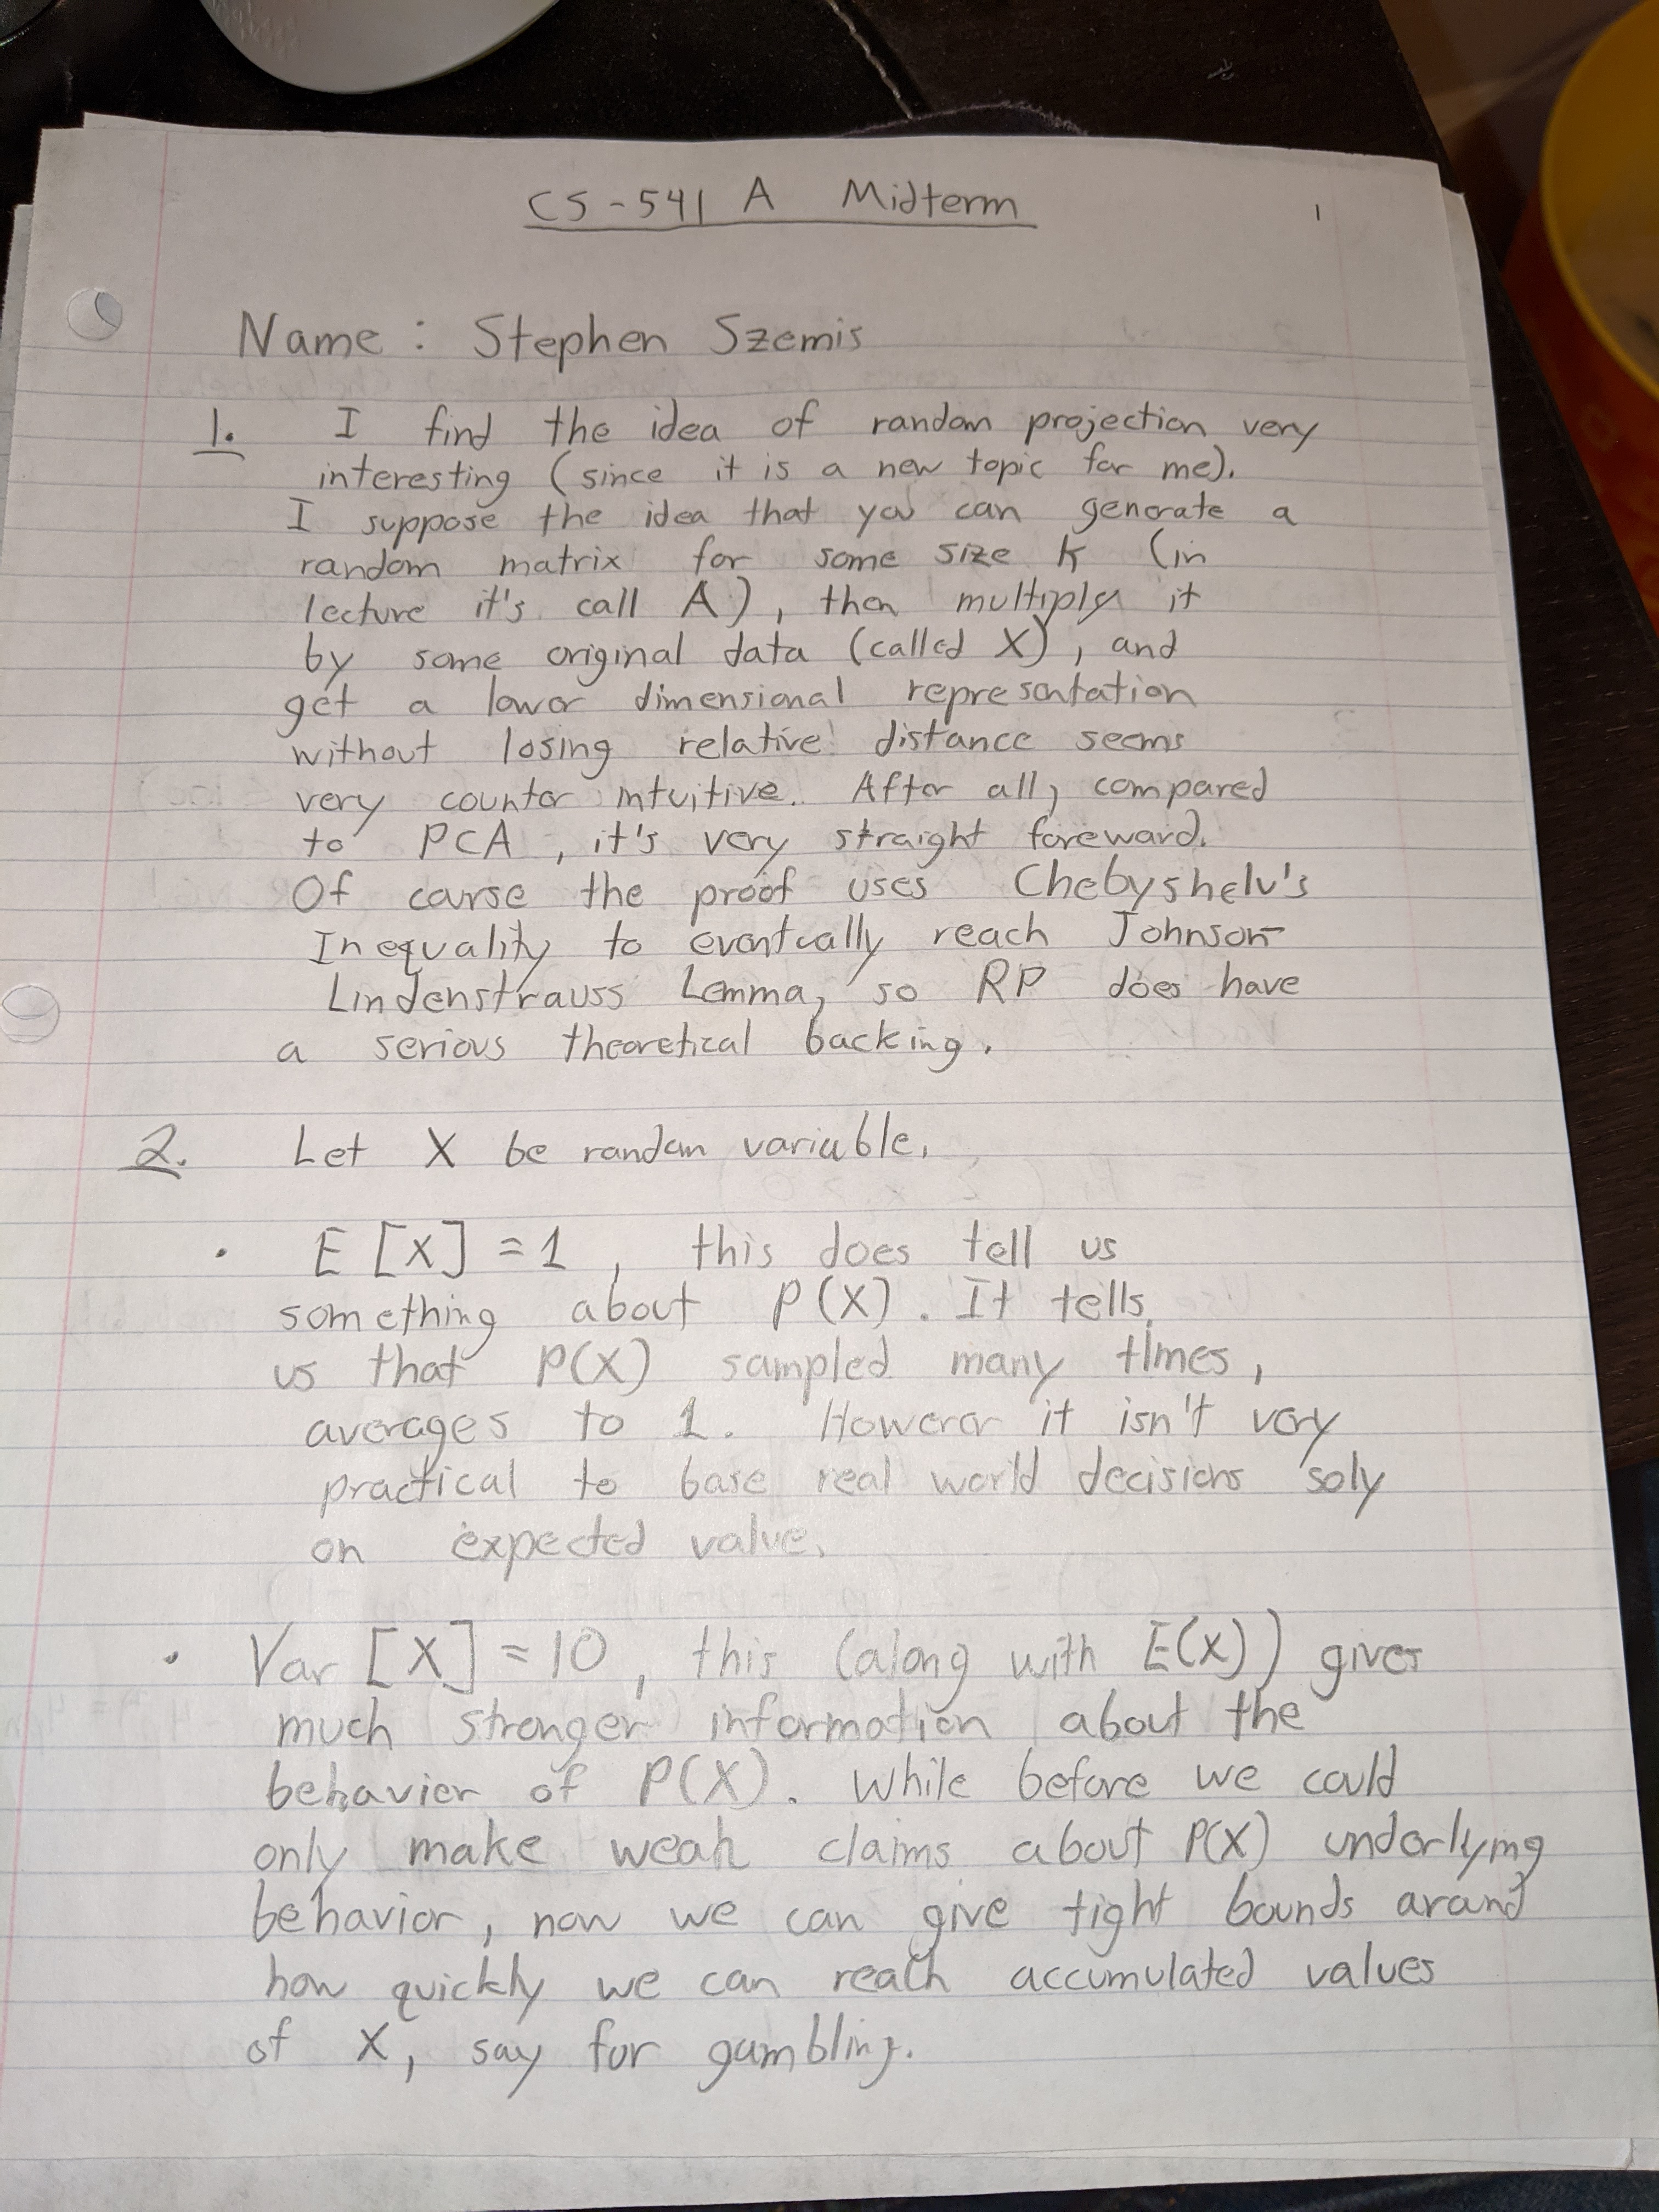 CS-541 A Midterm
1
Name: Stephen Szemis
1. I find the idea of random projection very
interesting (since it is a new topic for me).
I suppose the idea that you can generate a
random matrix for some size K (in
lecture it's call A), then multiply it
by some original data (called X), and
get a lower dimensional representation
without losing relative distance seems
very counter intuitive. After all, compared
to PCA, it's very straight foreward.
Of course the proof uses Chebyshelv's
Inequality to eventually reach Johnson-
Lindenstrauss Lemma, so RP does have
a serious theoretical backing.
2. Let X be random variable.
· E[X] = 1, this does tell us
something about P(X). It tells
us that P(X) sampled many times,
averages to 1. However it isn't very
practical to base real world decisions soly
on expected value.
· Var[X] = 10, this (along with E(X)) gives
much stronger information about the
behavior of P(X). While before we could
only make weak claims about P(X) underlying
behavior, now we can give tight bounds around
how quickly we can reach accumulated values
of X, say for gambling.